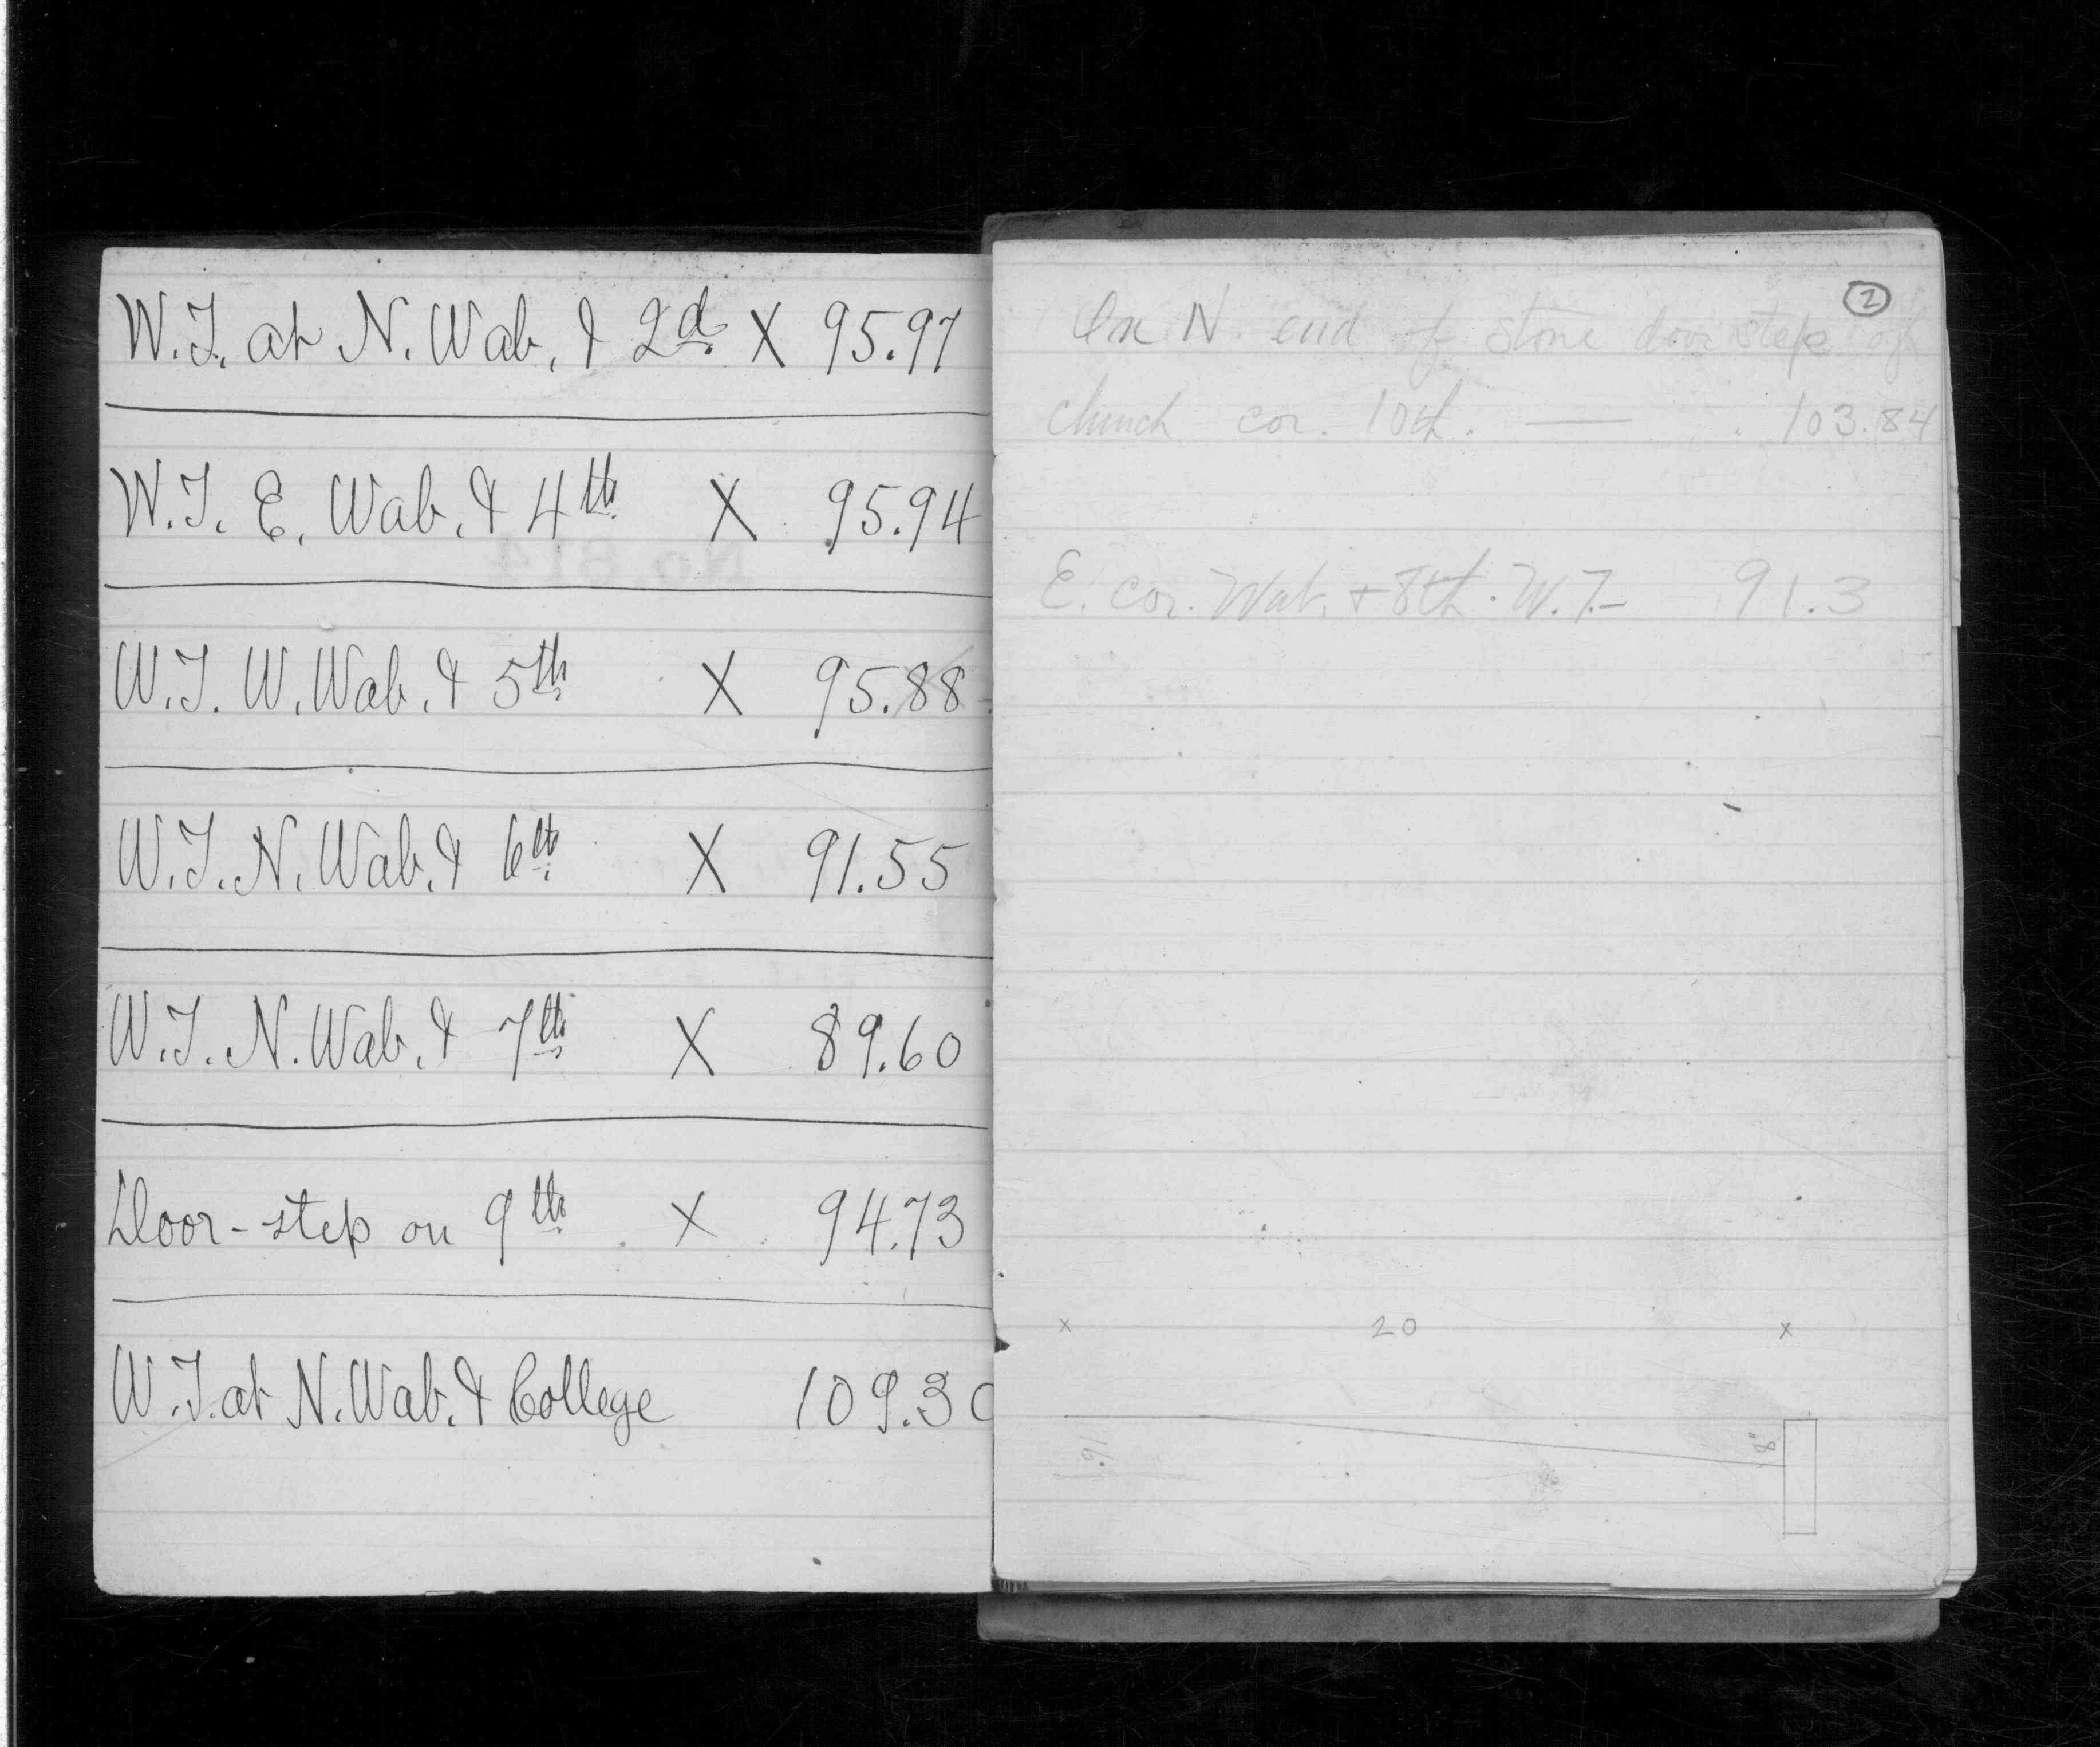 W.T. at N. Wab. & 2d. X 95.97
W.T. E. Wab. & 4th X 95.94
W.T. W. Wab. & 5th X 95.88
W.T. N. Wab. & 6th X 91.55
W.T. N. Wab. & 7th X 89.60
Door-step on 9th X 94.73
W.T. at N. Wab. & College 109.30
2
On N. end of stone door step of
church cor. 10th. — 103.84
E. cor. Wab. + 8th. W.T. — 91.3
x 20 x
.91
8"